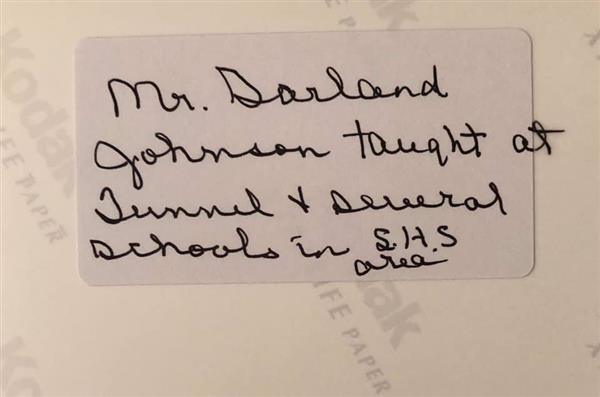 Mr. Darland
Johnson taught at
Tunnel & several
schools in S.H.S
area
Kodak
IFE PAPER
Kodak
IFE PAPER